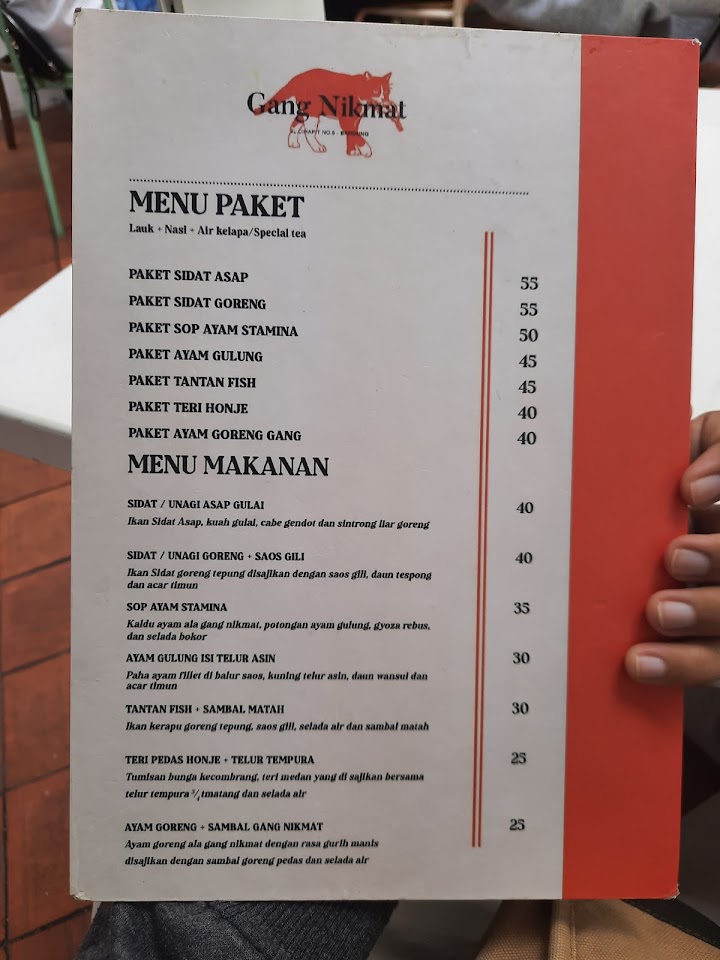 Gang Nikmat
NO.6 - BANDUNG
MENU PAKET
Lauk + Nasi + Air kelapa/Special tea
PAKET SIDAT ASAP 55
PAKET SIDAT GORENG 55
PAKET SOP AYAM STAMINA 50
PAKET AYAM GULUNG 45
PAKET TANTAN FISH 45
PAKET TERI HONJE 40
PAKET AYAM GORENG GANG 40
MENU MAKANAN
SIDAT / UNAGI ASAP GULAI 40
Ikan Sidat Asap, kuah gulai, cabe gendot dan sintrong liar goreng
SIDAT / UNAGI GORENG + SAOS GILI 40
Ikan Sidat goreng tepung disajikan dengan saos gili, daun tespong
dan acar timun
SOP AYAM STAMINA 35
Kaldu ayam ala gang nikmat, potongan ayam gulung, gyoza rebus,
dan selada bokor
AYAM GULUNG ISI TELUR ASIN 30
Paha ayam fillet di balur saos, kuning telur asin, daun wansui dan
acar timun
TANTAN FISH + SAMBAL MATAH 30
Ikan kerapu goreng tepung, saos gili, selada air dan sambal matah
TERI PEDAS HONJE + TELUR TEMPURA 25
Tumisan bunga kecombrang, teri medan yang di sajikan bersama
telur tempura 3/4 tmatang dan selada air
AYAM GORENG + SAMBAL GANG NIKMAT 25
Ayam goreng ala gang nikmat dengan rasa gurih manis
disajikan dengan sambal goreng pedas dan selada air